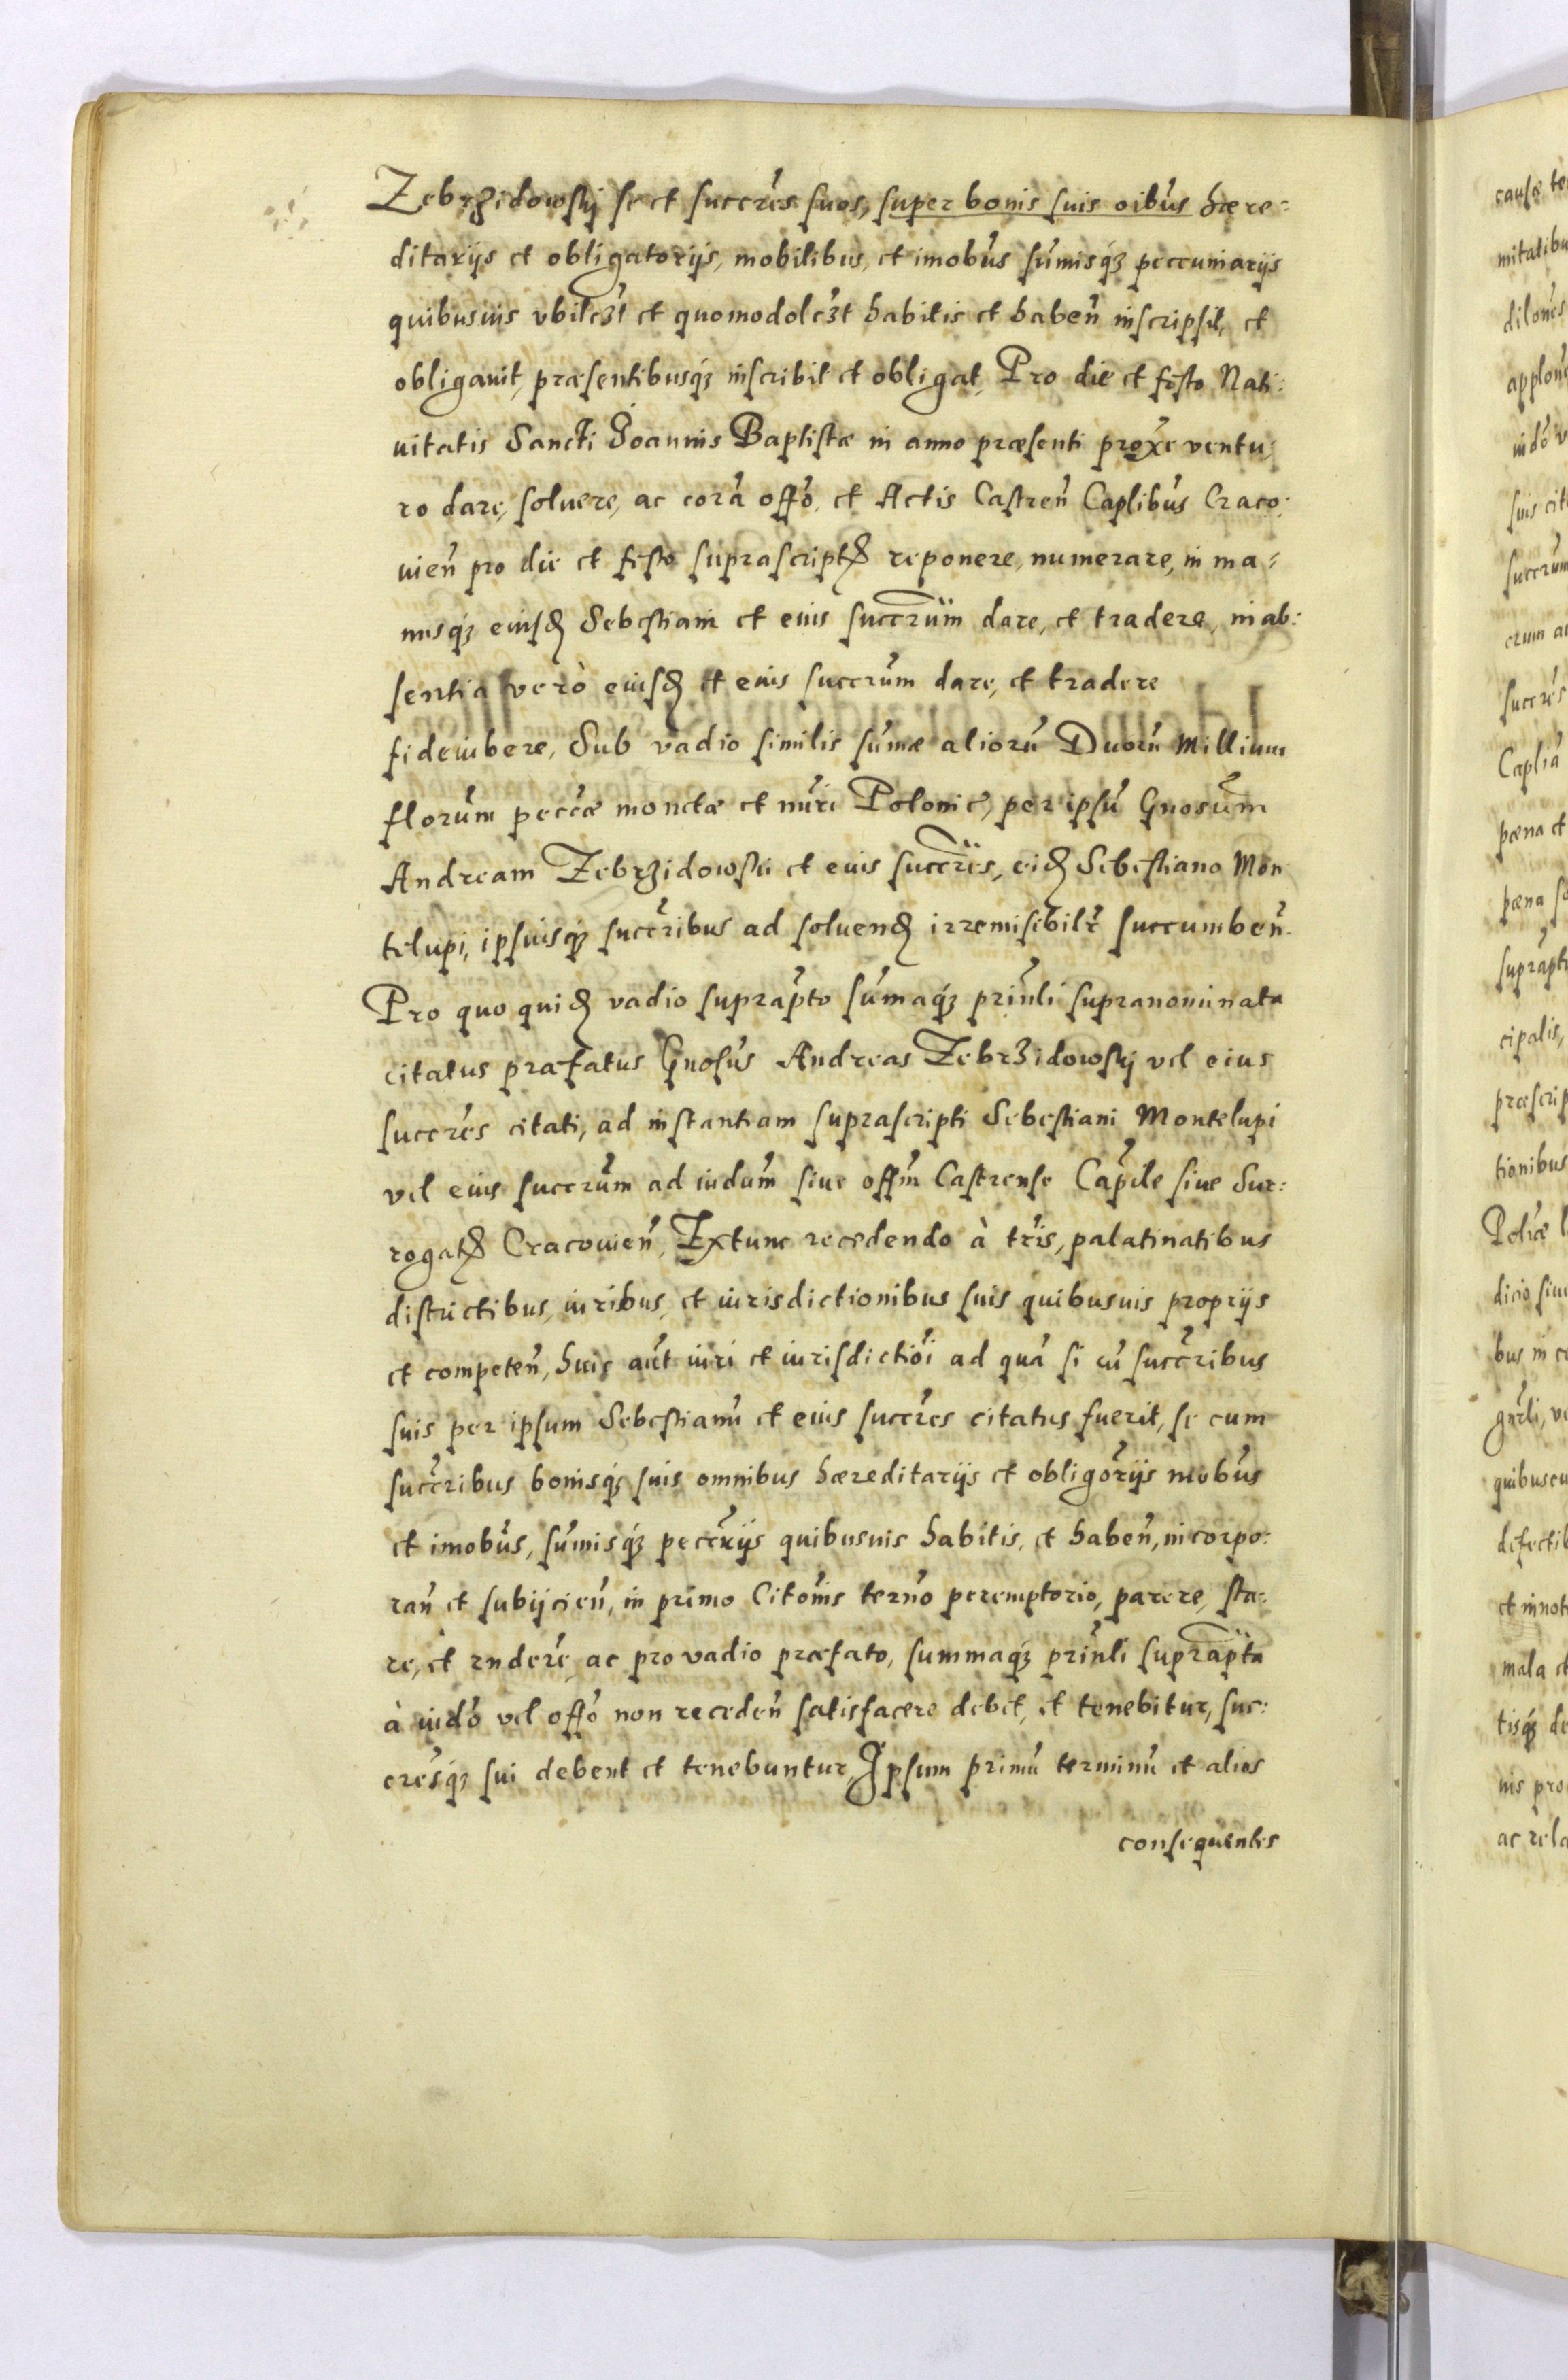 Zebrzidowskij se et succr̃es suos, super bonis suis oibũs hære:
ditarijs et obligatorijs, mobilibus, et imobũs sũmisq́ꝫ peccuniarijs
quibusuis vbilꝫt et quomodolꝫt habitis et habeñ inscripsit, et
obligauit, præsentibusq́ꝫ inscribit et obligat, Pro die et festo Nati:
uitatis Sancti Joannis Baptistæ in anno præsenti prox̃e ventu:
ro dare, soluere, ac corã offõ, et Actis Castreñ Caplibũs Craco:
uieñ pro die et festo suprascriptꝭ reponere, numerare, in ma:
nusq́ꝫ eiusđ Sebestiani et eius succrũm dare, et tradere, in ab:
sentia verò eiusđ et eius succrũm dare, et tradere
fideiubere, Sub vadio similis sũmæ aliorũ Duorũ Millium
florũm pecc̃æ monetæ et nũri Polonic̃, per ipsũ Gnosũm
Andream Zebrzidowskii et eius succr̃es, eiđ Sebestiano Mon
telupi, ipsiusq́ꝫ succr̃ibus ad soluenđ irremisibilr̃ succumbeñ.
Pro quo quiđ vadio suprap̃to sũmaq́ꝫ prĩnli supranominata
citatus præfatus Gnosũs Andreas Zebrzidowskij vel eius
succr̃es citati, ad instantiam suprascripti Sebestiani Montelupi
vel eius succrũm ad iudũm siue offm̃ Castrense Cap̃ile siue Sur:
rogatꝭ Cracouieñ, Extunc recedendo à tr̃is, palatinatibus
districtibus, iuribus, et iurisdictionibus suis quibusuis proprijs
et competeñ, huic aũt iuri et iurisdictiõi ad quã si cũ succr̃ibus
suis per ipsum Sebestianũ et eius succr̃es citatus fuerit, se cum
succr̃ibus bonisq́ꝫ suis omnibus hæreditarijs et obligõrijs mobũs
et imobũs, sũmisq́ꝫ peccr̃ijs quibusuis habitis, et habeñ, incorpo:
rañ et subijcieñ, in primo Citoñis terñõ peremptorio, parere, sta:
re, et rnder̃e, ac pro vadio præfato, summaq́ꝫ prĩnli suprap̃ta
à iudõ vel offõ non recedeñ satisfacere debet, et tenebitur, suc:
cres̃q́ꝫ sui debent et tenebuntur, Ipsum primũ terminũ et alios
consequentes